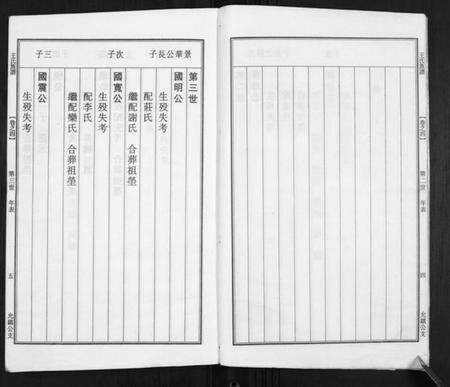 王氏族譜
【卷之四】
第二世 年表
四
允鐵公支
第三世
景華公長子
國明公
生歿失考
配莊氏
繼配謝氏 合葬祖塋
次子
國寬公
生歿失考
配李氏
繼配欒氏 合葬祖塋
三子
國震公
生歿失考
王氏族譜
【卷之四】
第三世 年表
五
允鐵公支